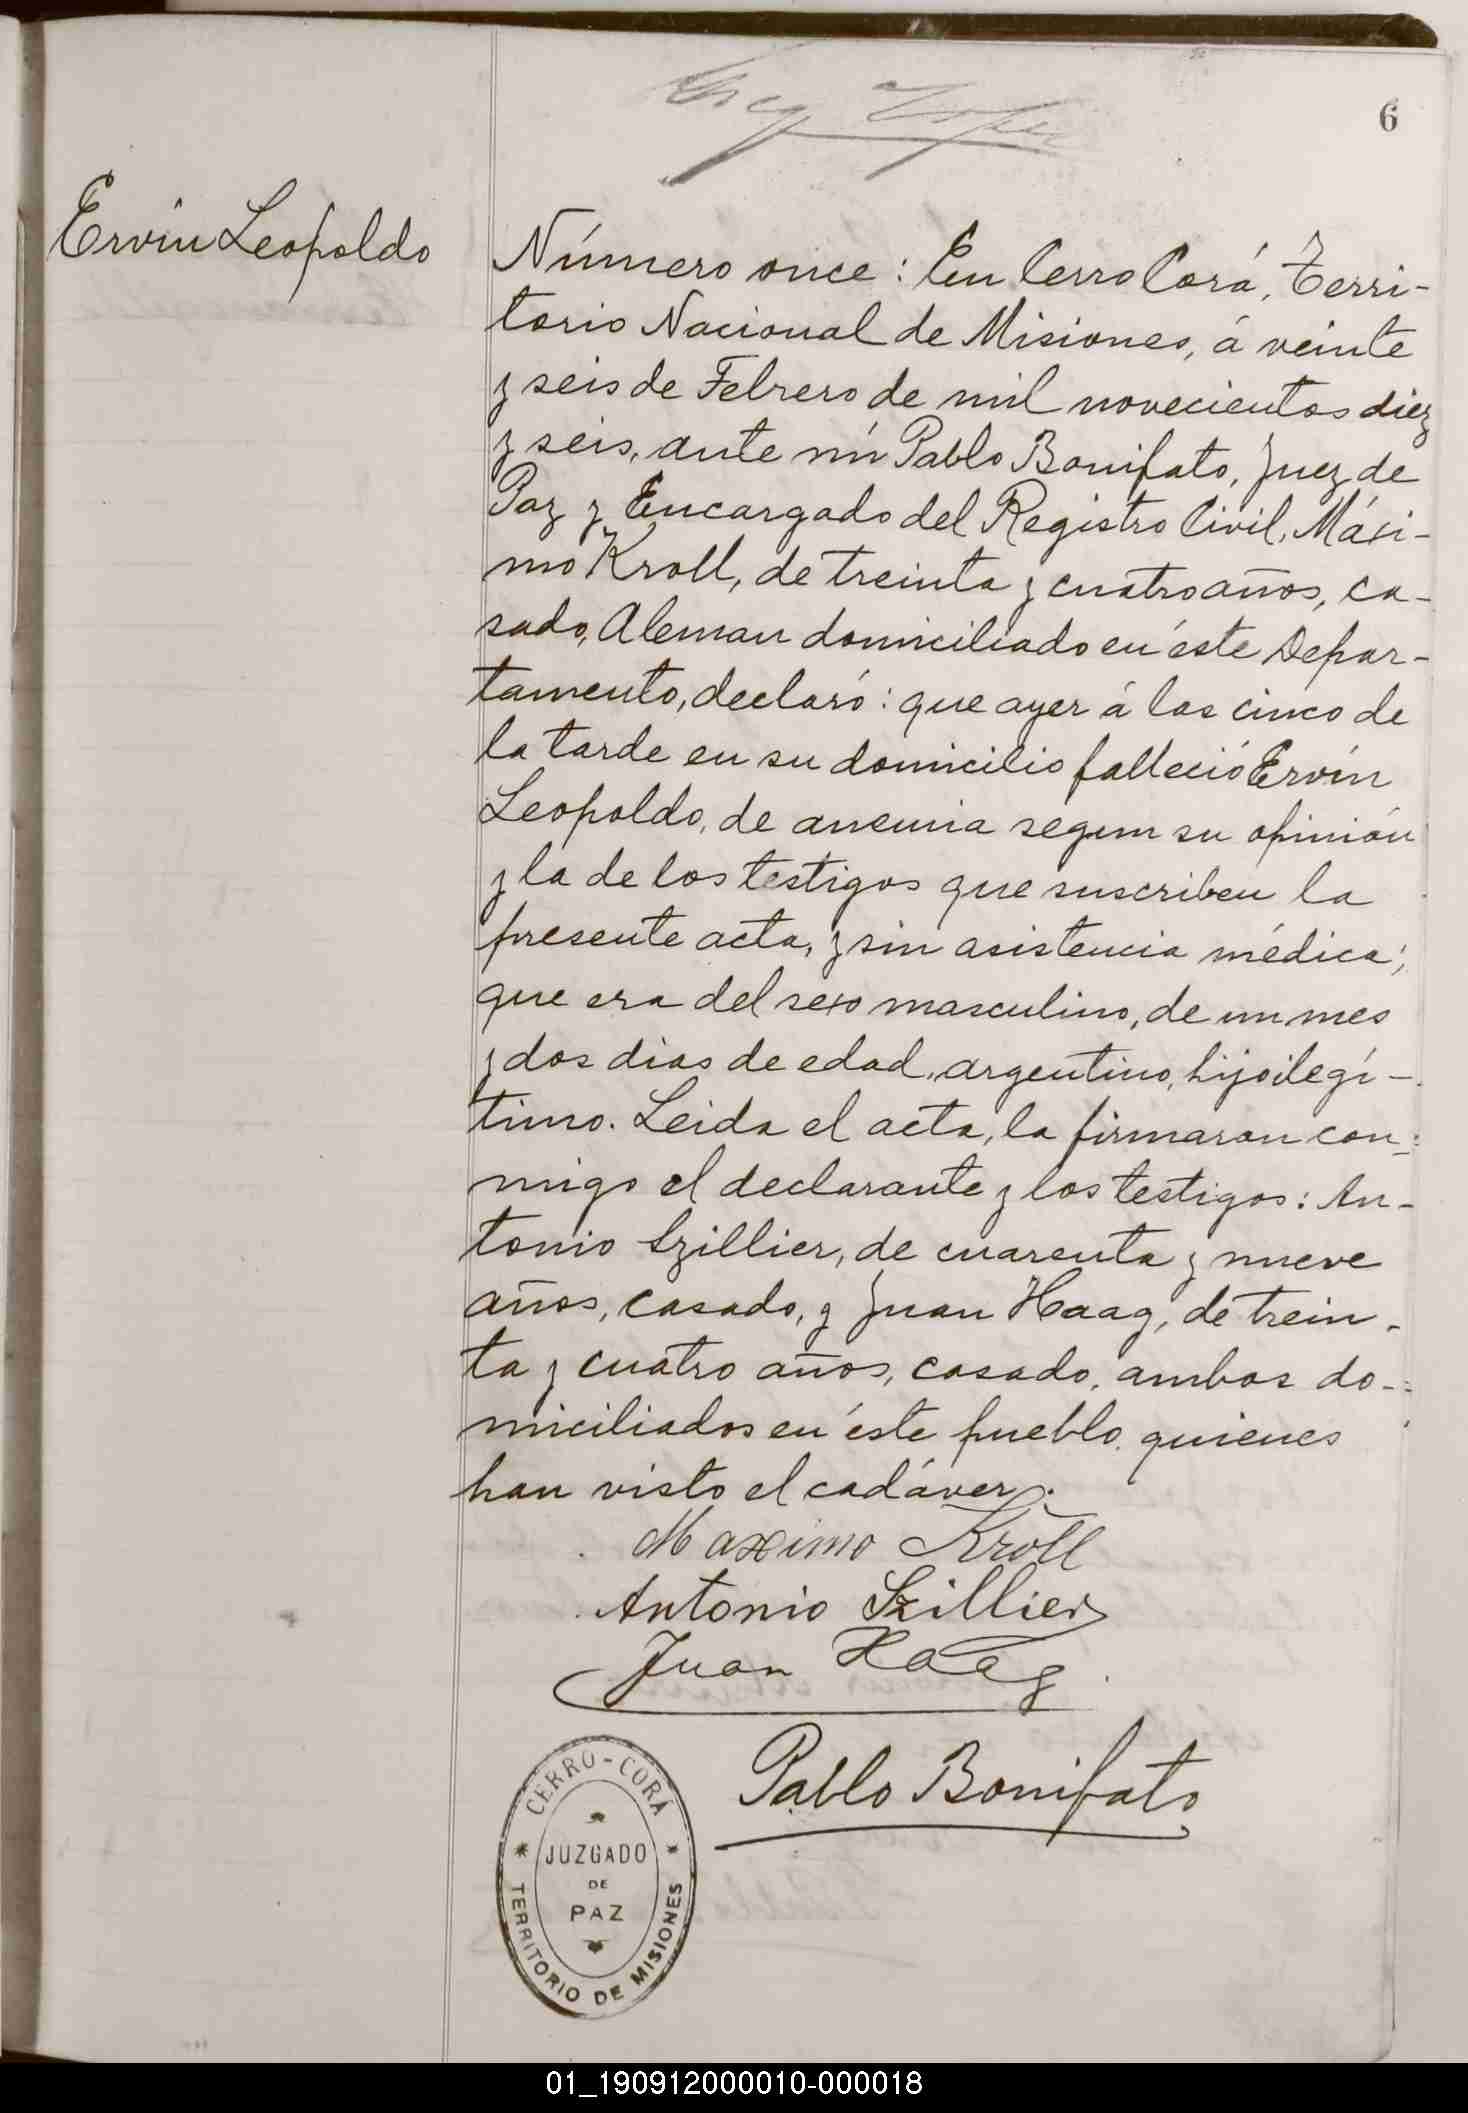 6
Ervin Leopoldo
Número once: En Cerro Corá, Terri-
torio Nacional de Misiones, á veinte
y seis de Febrero de mil novecientos diez
y seis, ante mí Pablo Bonifato, Juez de
Paz y Encargado del Registro Civil, Máxi-
mo Kroll, de treinta y cuatro años, ca-
sado, Aleman domiciliado en éste Depar-
tamento, declaró: que ayer á las cinco de
la tarde en su domicilio falleció Ervín
Leopoldo, de anemia segun su opinión
y la de los testigos que suscriben la
presente acta, y sin asistencia médica;
que era del sexo masculino, de un mes
y dos dias de edad, argentino, hijo ilegí-
timo. Leida el acta, la firmaron con-
migo el declarante y los testigos: An-
tonio Szillier, de cuarenta y nueve
años, casado, y Juan Haag, de trein-
ta y cuatro años, casado, ambos do-
miciliados en éste pueblo, quienes
han visto el cadáver.
Maximo Kroll
Antonio Szillier
Juan Haag
Pablo Bonifato
CERRO-CORÁ
JUZGADO
DE
PAZ
TERRITORIO DE MISIONES
01_190912000010-000018